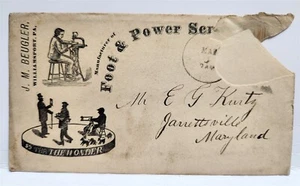 J. M. BEUGLER,
WILLIAMSPORT, PA.
Manufacturer of
Foot & Power Scr
THE WONDER
Mr E G Kurtz
Jarrettsville
Maryland